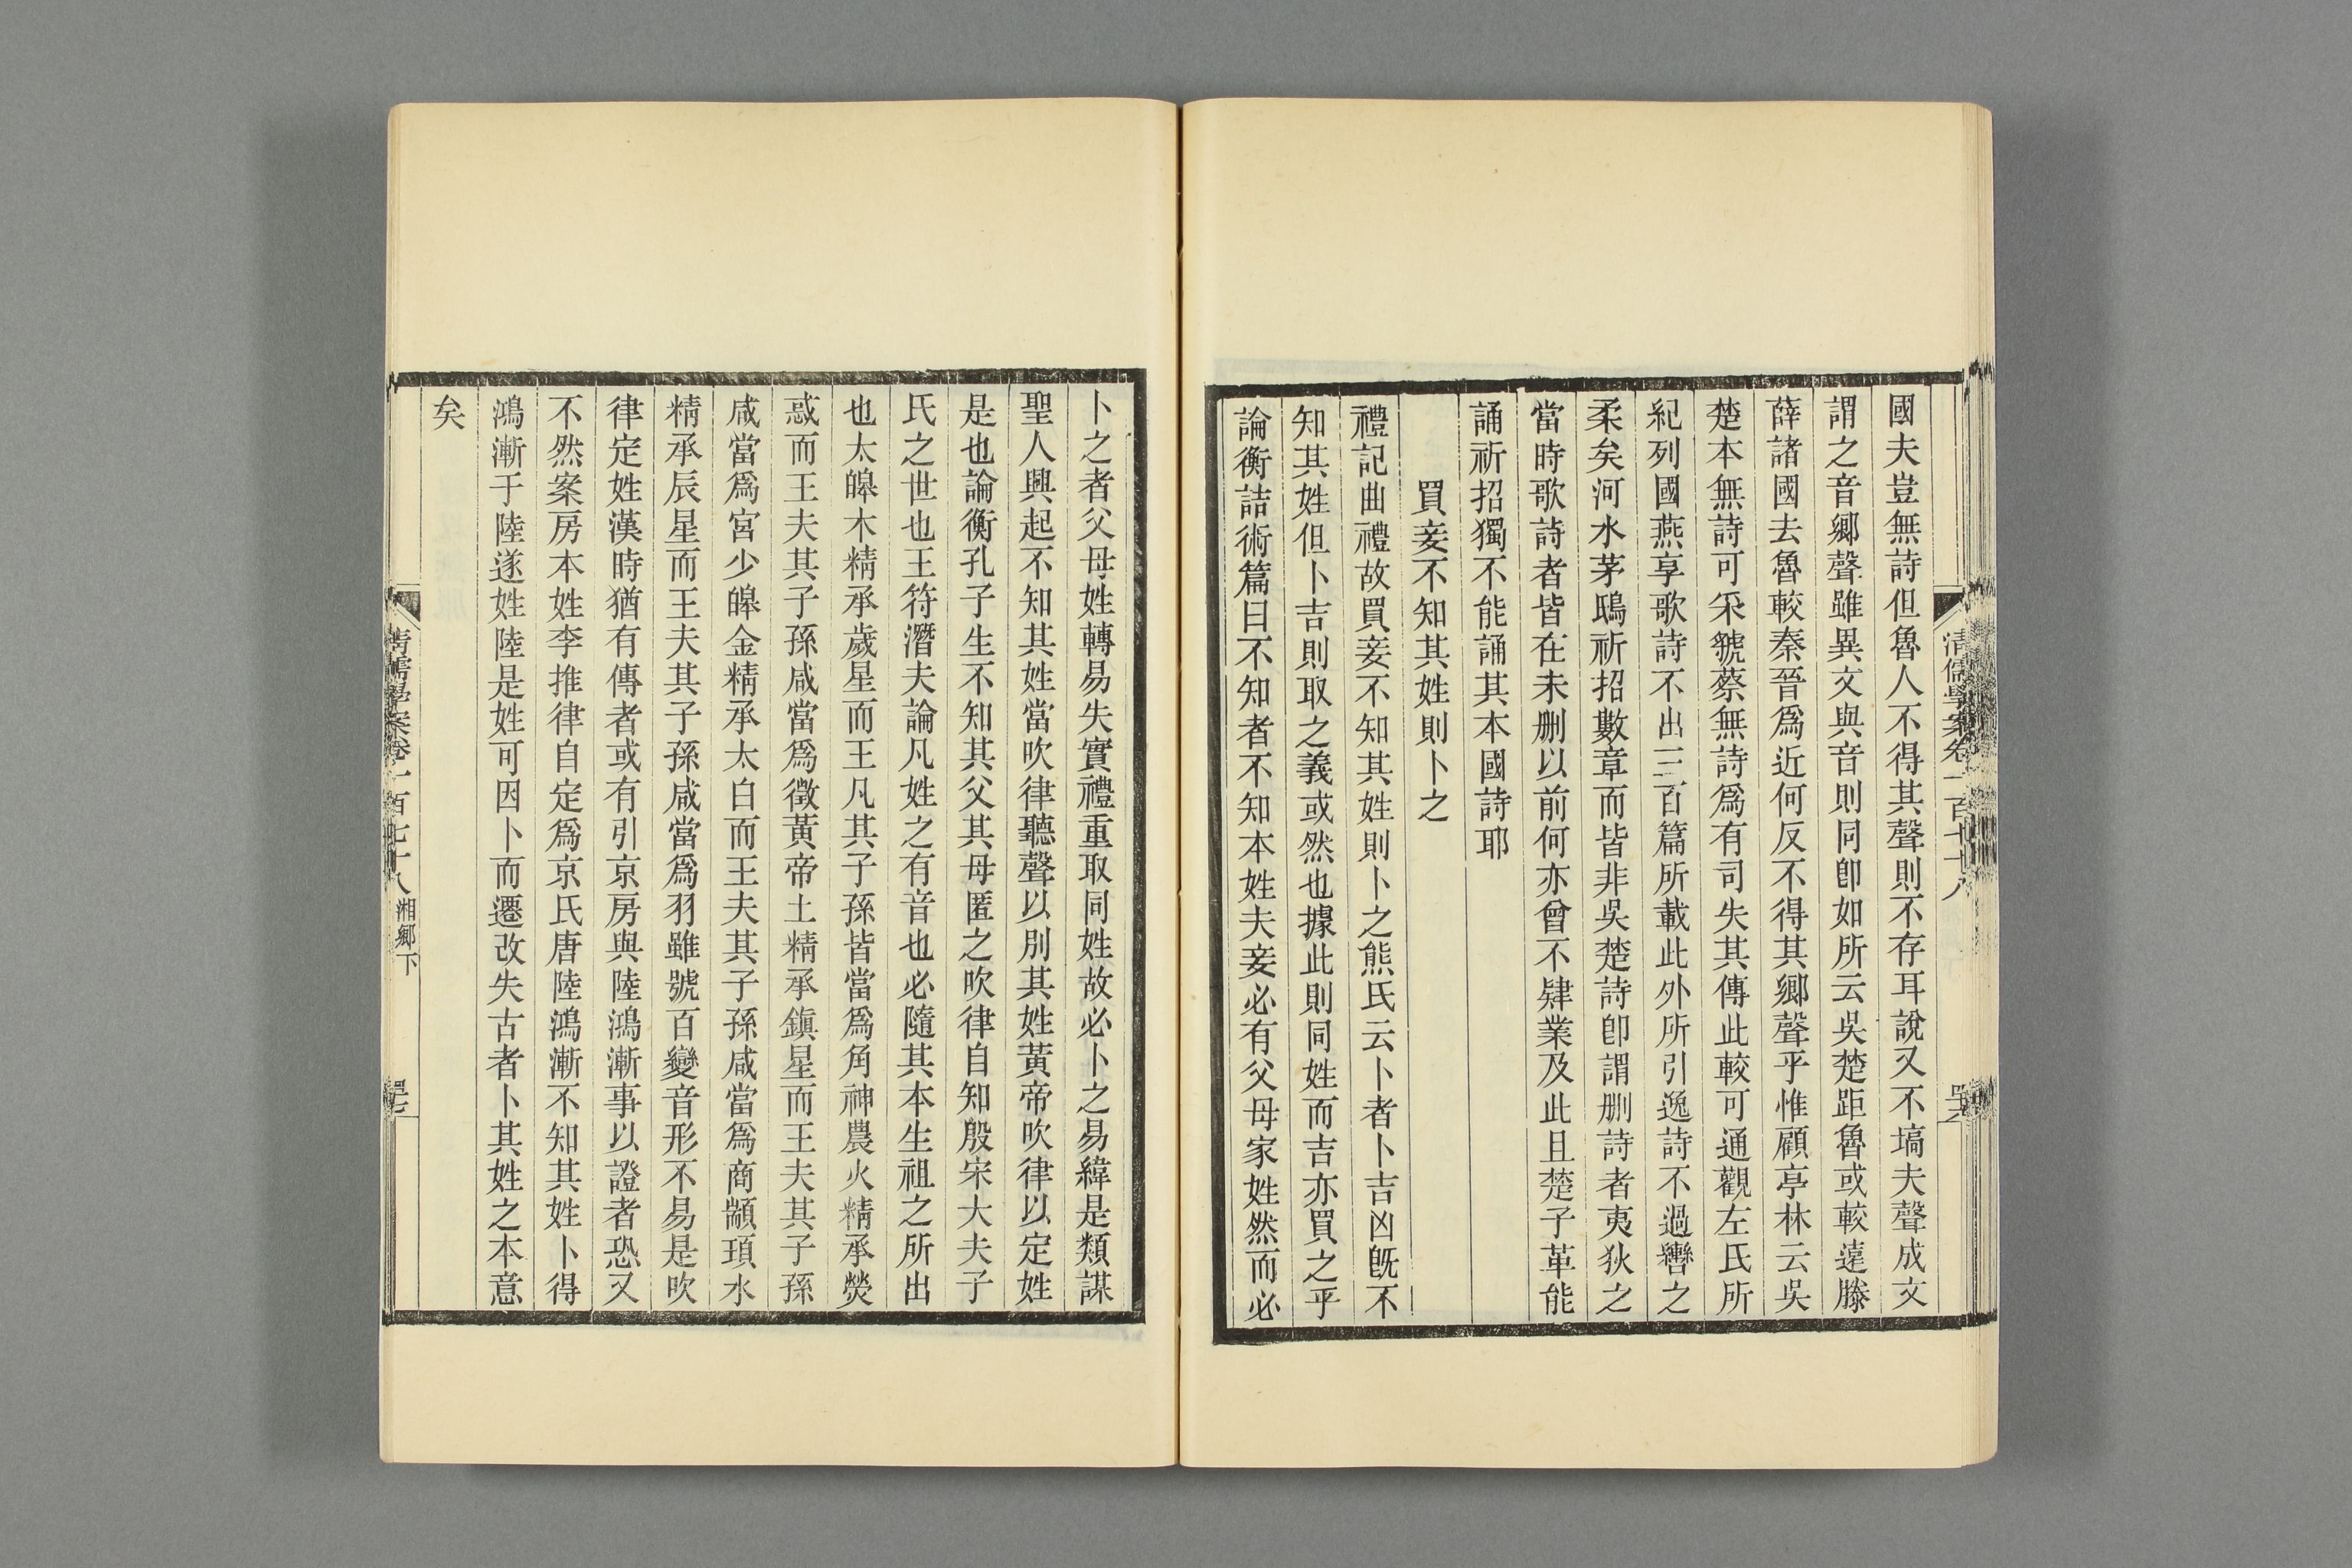 國夫豈無詩但魯人不得其聲則不存耳說又不塙夫聲成文
謂之音鄉聲雖異文與音則同卽如所云吳楚距魯或較遠滕
薛諸國去魯較秦晉爲近何反不得其鄉聲乎惟顧亭林云吳
楚本無詩可采虢蔡無詩爲有司失其傳此較可通觀左氏所
紀列國燕享歌詩不出三百篇所載此外所引逸詩不過轡之
柔矣河水茅鴟祈招數章而皆非吳楚詩卽謂刪詩者夷狄之
當時歌詩者皆在未刪以前何亦曾不肄業及此且楚子革能
誦祈招獨不能誦其本國詩耶
買妾不知其姓則卜之
禮記曲禮故買妾不知其姓則卜之熊氏云卜者卜吉凶旣不
知其姓但卜吉則取之義或然也據此則同姓而吉亦買之乎
論衡詰術篇曰不知者不知本姓夫妾必有父母家姓然而必
清儒學案卷一百七十八
卜之者父母姓轉易失實禮重取同姓故必卜之易緯是類謀
聖人興起不知其姓當吹律聽聲以別其姓黃帝吹律以定姓
是也論衡孔子生不知其父其母匿之吹律自知殷宋大夫子
氏之世也王符潛夫論凡姓之有音也必隨其本生祖之所出
也太皞木精承歲星而王凡其子孫皆當爲角神農火精承熒
惑而王夫其子孫咸當爲徵黃帝土精承鎭星而王夫其子孫
咸當爲宮少皞金精承太白而王夫其子孫咸當爲商顓頊水
精承辰星而王夫其子孫咸當爲羽雖號百變音形不易是吹
律定姓漢時猶有傳者或有引京房與陸鴻漸事以證者恐又
不然案房本姓李推律自定爲京氏唐陸鴻漸不知其姓卜得
鴻漸于陸遂姓陸是姓可因卜而遷改失古者卜其姓之本意
矣
清儒學案卷一百七十八 湘鄉下